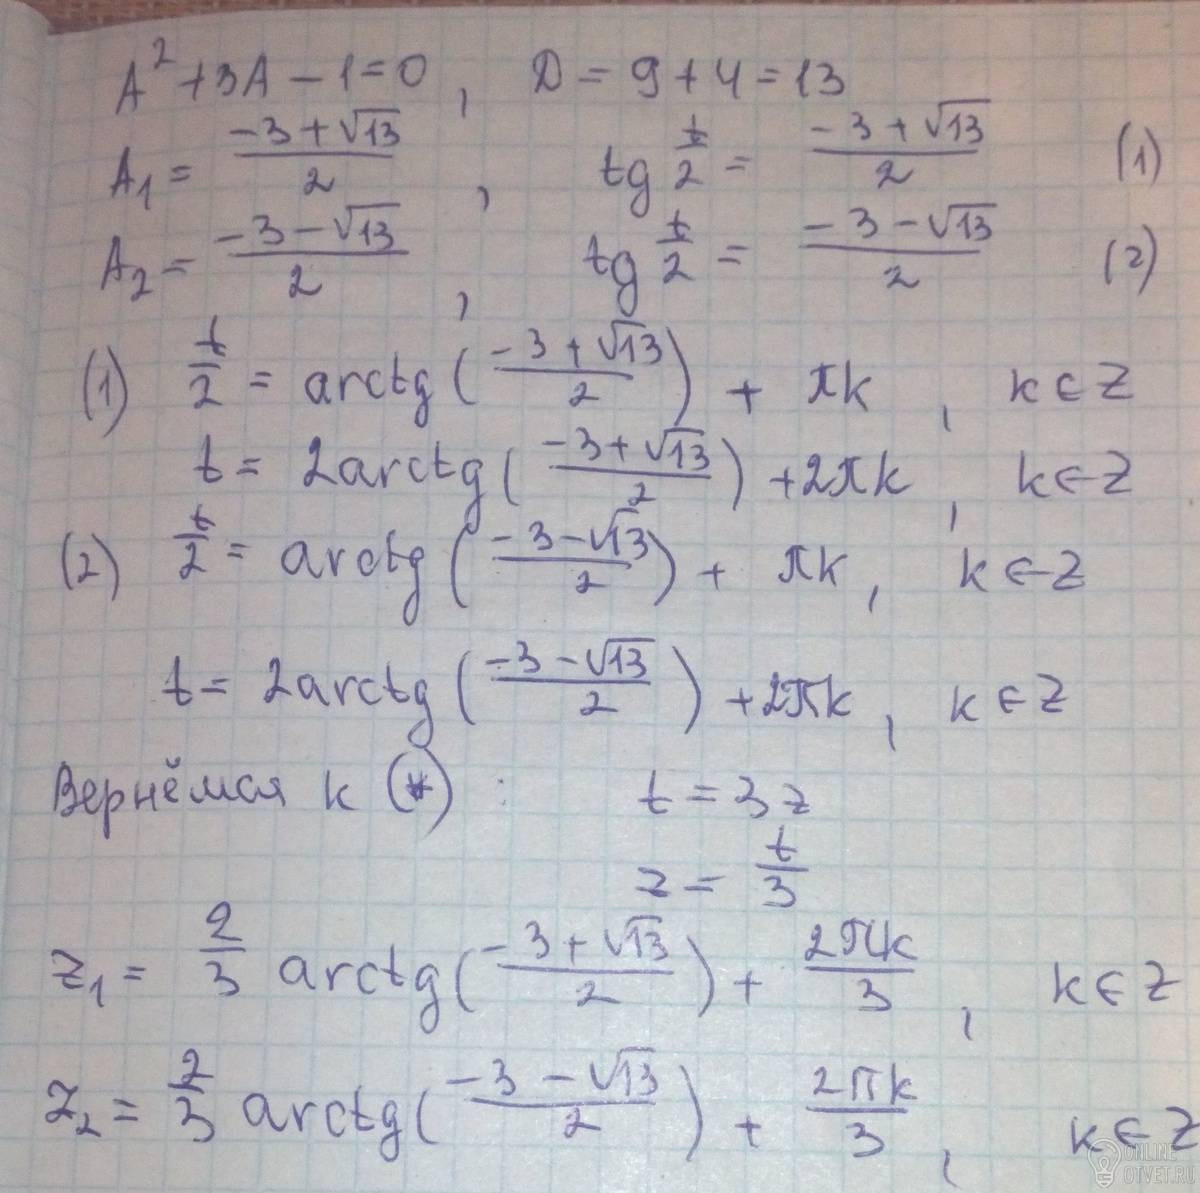 A² + 3A − 1 = 0 , D = 9 + 4 = 13
A₁ = (−3 + √13)/2 , tg t/2 = (−3 + √13)/2 (1)
A₂ = (−3 − √13)/2 , tg t/2 = (−3 − √13)/2 (2)
(1) t/2 = arctg((−3 + √13)/2) + πk , k ∈ Z
t = 2arctg((−3 + √13)/2) + 2πk , k ∈ Z
(2) t/2 = arctg((−3 − √13)/2) + πk , k ∈ Z
t = 2arctg((−3 − √13)/2) + 2πk , k ∈ Z
Вернёмся к (*) : t = 3z
z = t/3
z₁ = 2/3 arctg((−3 + √13)/2) + 2πk/3 , k ∈ Z
z₂ = 2/3 arctg((−3 − √13)/2) + 2πk/3 , k ∈ Z
ONLINE
OTVET.RU